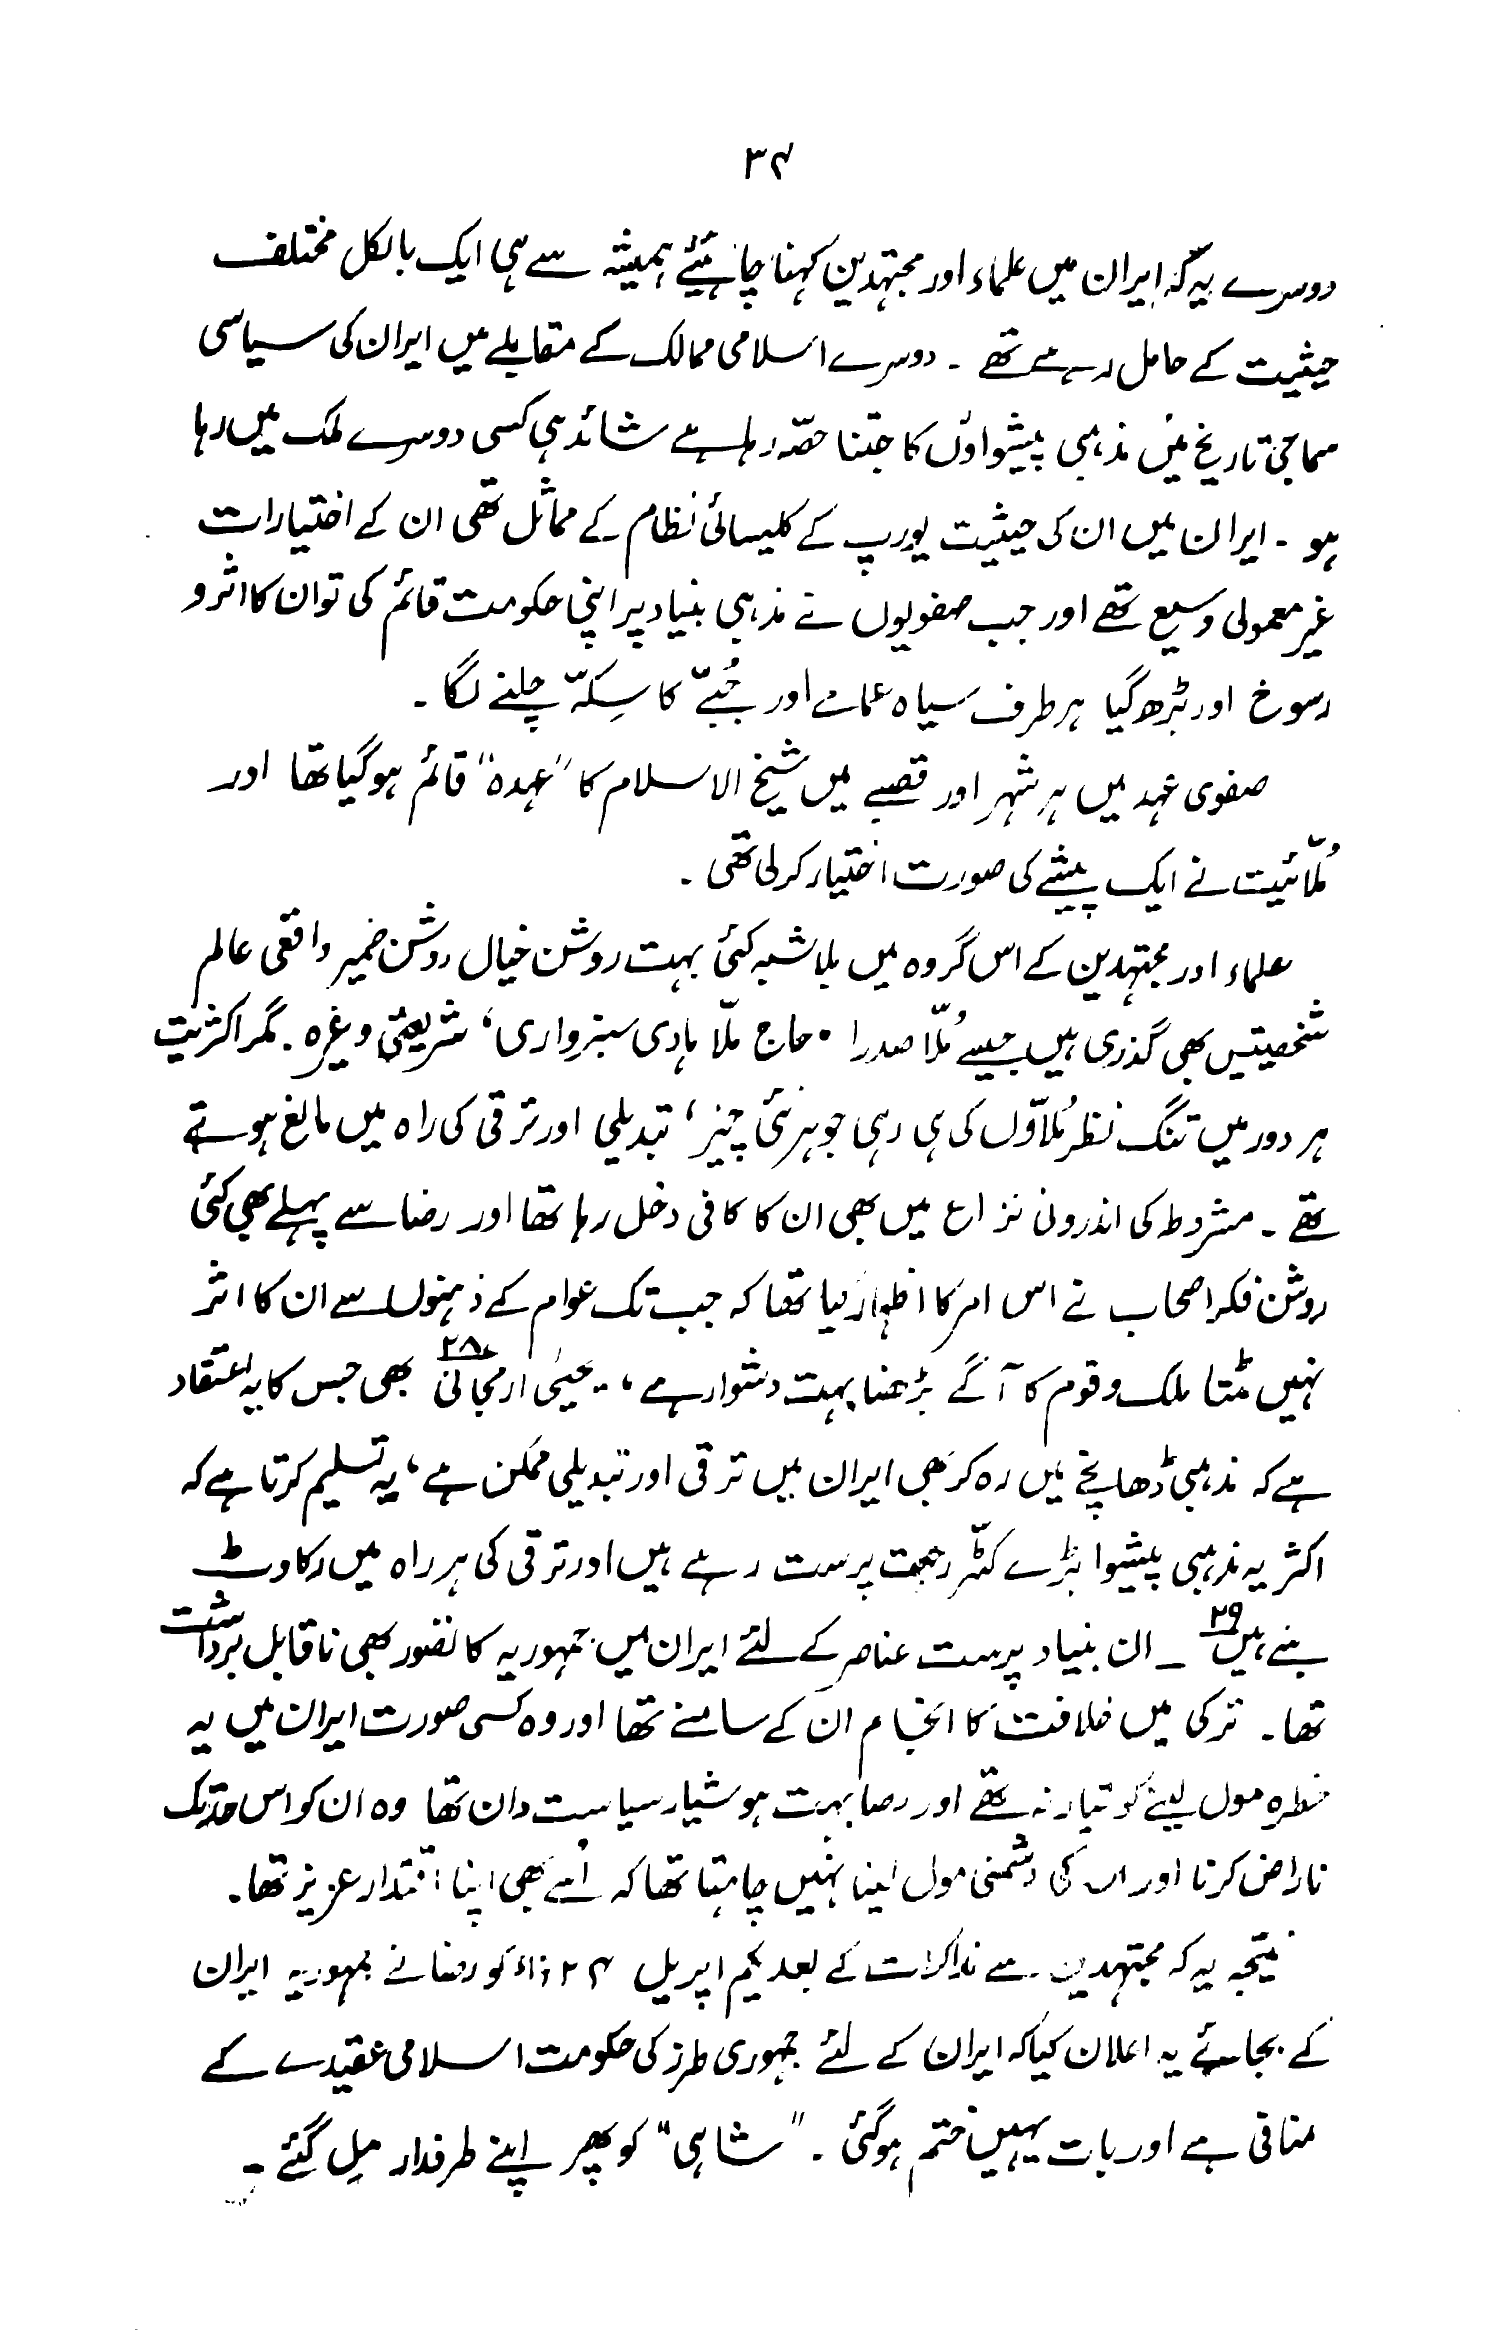 ۳۴
دوسرے یہ کہ ایران میں علماء اور مجتہدین کہنا چاہئیے ہمیشہ سے ہی ایک بالکل مختلف
حیثیت کے حامل رہے تھے ۔ دوسرے اسلامی ممالک کے مقابلے میں ایران کی سیاسی
سماجی تاریخ میں مذہبی پیشواؤں کا جتنا حصّہ رہا ہے شائد ہی کسی دوسرے ملک میں رہا
ہو ۔ ایران میں ان کی حیثیت یورپ کے کلیسائی نظام کے مماثل تھی ان کے اختیارات
غیر معمولی وسیع تھے اور جب صفویوں نے مذہبی بنیاد پر اپنی حکومت قائم کی تو ان کا اثر و
رسوخ اور بڑھ گیا ہر طرف سیاہ عمامے اور جُبّے کا سِکّہ چلنے لگا ۔
صفوی عہد میں ہر شہر اور قصبے میں شیخ الاسلام کا "عہدہ" قائم ہو گیا تھا اور
مُلّائیت نے ایک پیشے کی صورت اختیار کر لی تھی ۔
علماء اور مجتہدین کے اس گروہ میں بلا شبہ کئی بہت روشن خیال روشن ضمیر واقعی عالم
شخصیتیں بھی گذری ہیں جیسے مُلّا صدرا ، حاج ملّا ہادی سبزواری ، شریعتی وغیرہ ۔ مگر اکثریت
ہر دور میں تنگ نظر مُلاّؤں کی ہی رہی جو ہر نئی چیز ، تبدیلی اور ترقی کی راہ میں مانع ہوتے
تھے ۔ مشروطہ کی اندرونی نزاع میں بھی ان کا کافی دخل رہا تھا اور رضا سے پہلے بھی کئی
روشن فکر اصحاب نے اس امر کا اظہار کیا تھا کہ جب تک عوام کے ذہنوں سے ان کا اثر
نہیں مٹتا ملک و قوم کا آگے بڑھنا بہت دشوار ہے ،، ۔ عیسٰی ارمجانی ؏۲۸ بھی جس کا یہ اعتقاد
ہے کہ مذہبی ڈھانچے میں رہ کر بھی ایران میں ترقی اور تبدیلی ممکن ہے ، یہ تسلیم کرتا ہے کہ
اکثر یہ مذہبی پیشوا بڑے کٹّر رجعت پرست رہے ہیں اور ترقی کی ہر راہ میں رکاوٹ
بنے ہیں ۲۹ ۔ ان بنیاد پرست عناصر کے لئے ایران میں جمہوریہ کا تصور بھی ناقابل برداشت
تھا ۔ ترکی میں خلافت کا انجام ان کے سامنے تھا اور وہ کسی صورت ایران میں یہ
خطرہ مول لینے کو تیار نہ تھے اور رضا بہت ہوشیار سیاست دان تھا وہ ان کو اس حد تک
ناراض کرنا اور ان کی دشمنی مول لینا نہیں چاہتا تھا کہ اُسے بھی اپنا اقتدار عزیز تھا ۔
نتیجہ یہ کہ مجتہدین سے مذاکرات کے بعد یکم اپریل ۲۴ءکو رضا نے جمہوریہ ایران
کے بجائے یہ اعلان کیا کہ ایران کے لئے جمہوری طرز کی حکومت اسلامی عقیدے کے
منافی ہے اور بات یہیں ختم ہو گئی ۔ "شاہی" کو پھر اپنے طرفدار مِل گئے ۔